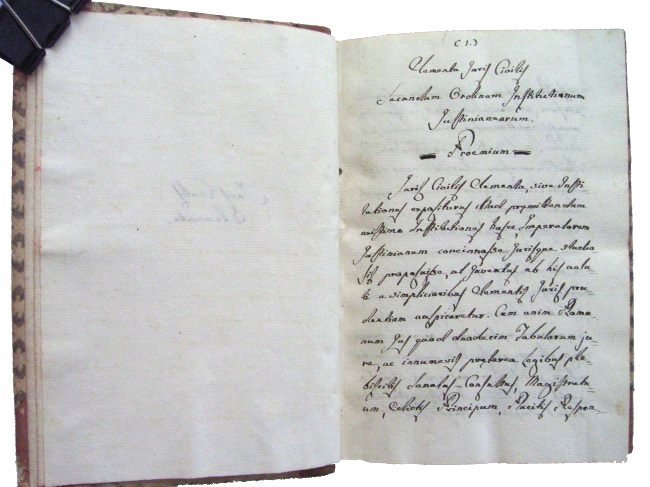 (1.)
Elementa Juris Civilis
Secundum Ordinem Institutionum
Justinianearum.
Proemium
Juris Civilis Elementa, sive Insti-
tutiones expositurus illud præmittendum
existimo Institutiones hasce, Imperatorem
Justinianum concinnasse Jurisque studio
sis proposuisse, ut Juventus ab his velu-
ti a simplicioribus Elementis Juris pru-
dentiam auspicaretur. Cum enim Roma-
num Jus quod duodecim Tabularum ju-
re, ac innumeris præterea Legibus ple-
biscitis Senatus-Consultus, Magistratu-
um, Edictis Principum, Placitis Respon-